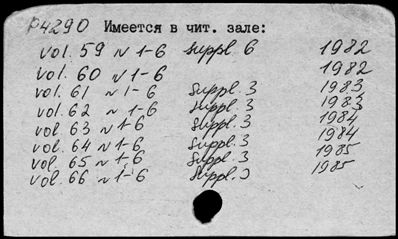 р4290 Имеется в чит. зале:
vol. 59 N 1-6 Suppl. 6 1982
vol. 60 N 1-6 1982
vol. 61 N 1-6 Suppl. 3 1983
vol. 62 N 1-6 Suppl. 3 1983
vol 63 N 1-6 Suppl. 3 1984
vol. 64 N 1-6 Suppl. 3 1984
vol. 65 N 1-6 Suppl. 3 1985
vol. 66 N 1-6 Suppl. 3 1985